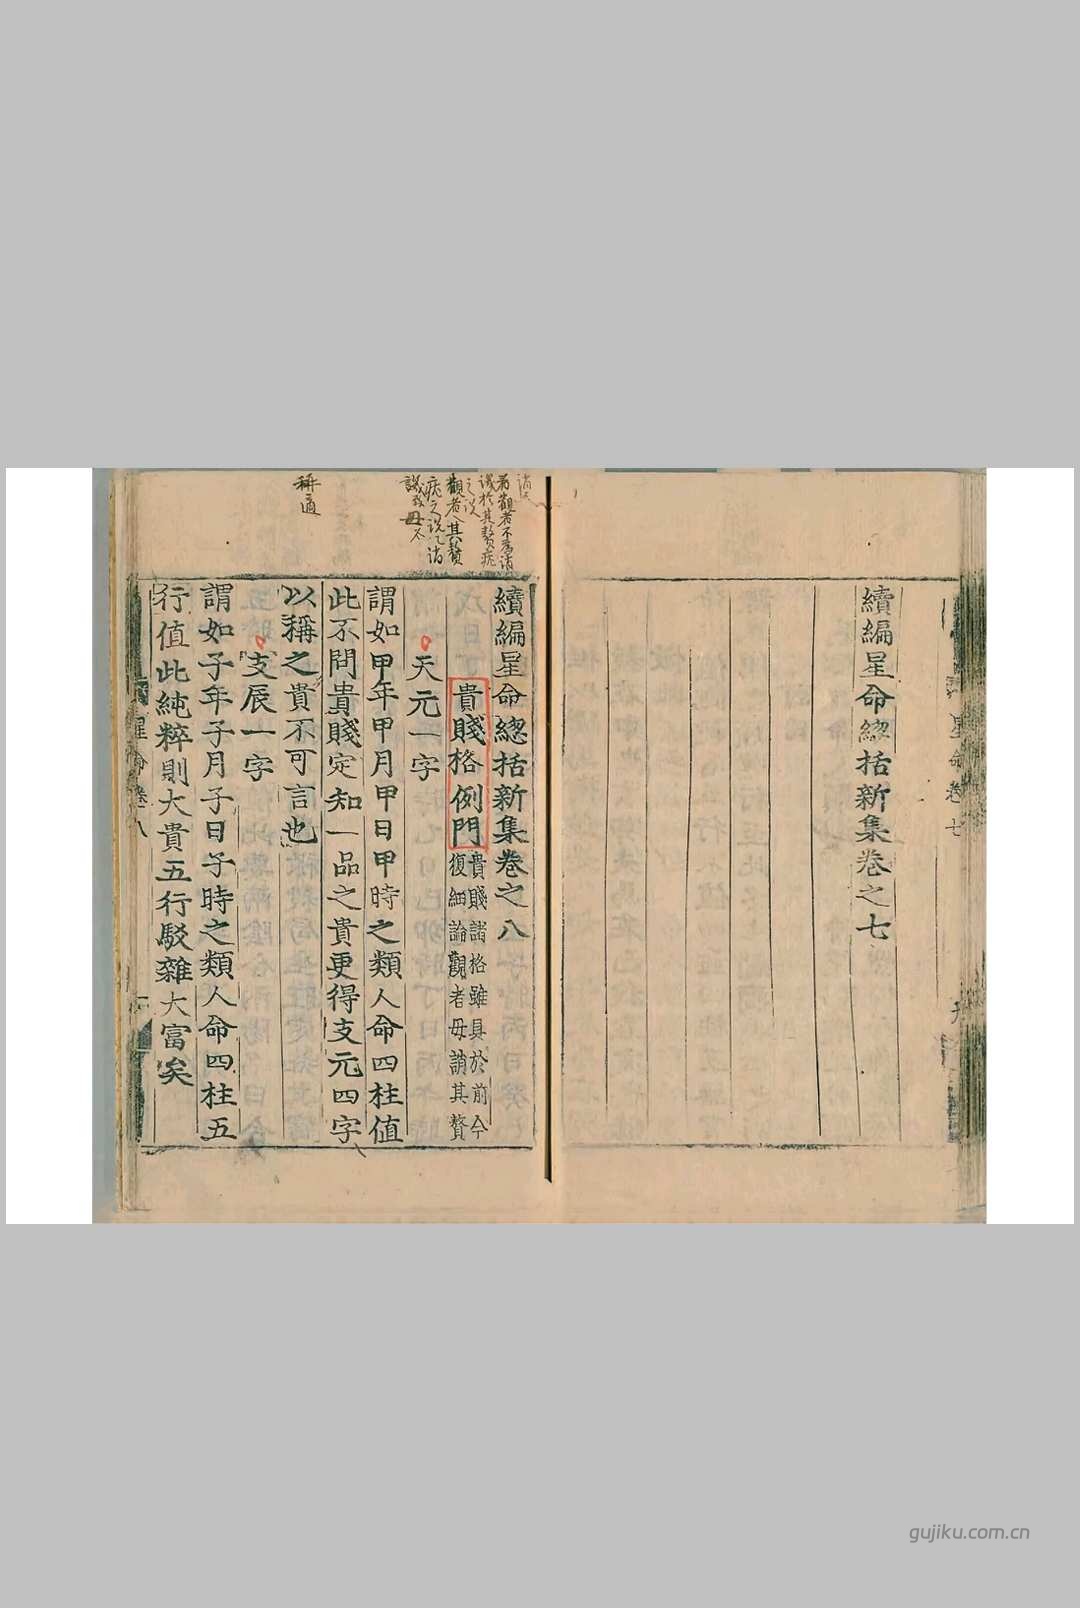 續編星命總括新集卷之七
星命卷七
續編星命總括新集卷之八
貴賤格例門
貴賤諸格雖具於前今
復細論觀者毋誚其贅
天元一字
謂如甲年甲月甲日甲時之類人命四柱值
此不問貴賤定知一品之貴更得支元四字
以稱之貴不可言也
支辰一字
謂如子年子月子日子時之類人命四柱五
行值此純粹則大貴五行駁雜大富矣
星命卷八
稱適
gujiku.com.cn